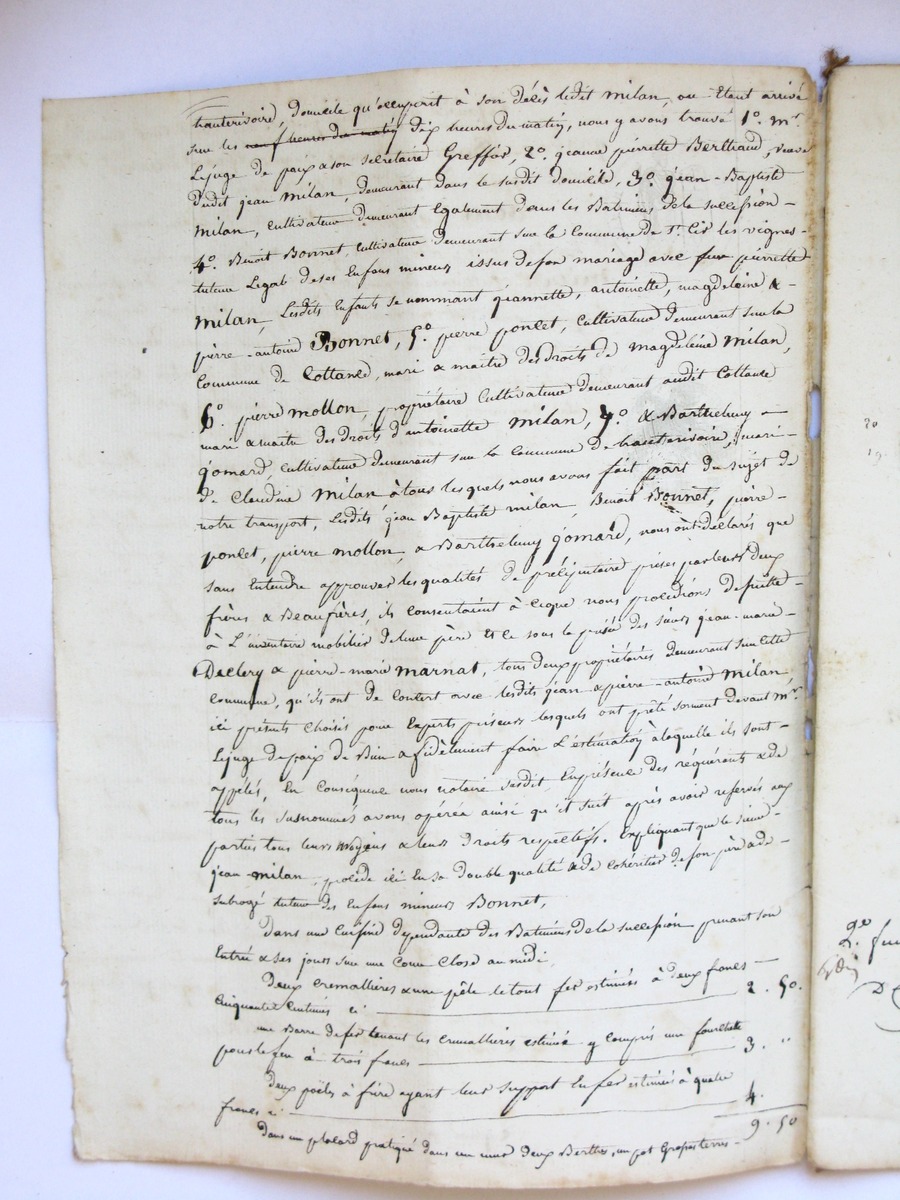 hauterivoire, Domicile qu'occupait à son décès ledit milan, ou Etant arrivé
sur les neuf heures du matin dix heures du matin, nous y avons trouvé 1°. mr.
Lejuge de paix & son secretaire Greffier, 2°. jeanne pierrette Berthaud, veuve
dudit jean milan, demeurant dans le susdit domicile, 3°. jean-Baptiste
milan, cultivateur demeurant Egalement dans les Batimens de la succession -
4°. Benoit Bonnet, cultivateur demeurant sur la Commune de St. Cir les vignes -
tuteur Legal de ses Enfans mineurs issus de son mariage avec feue pierrette
milan, Lesdits Enfants se nommant jeannette, antoinette, magdeleine &
pierre-antoine Bonnet, 5°. pierre poncet, cultivateur demeurant sur la
Commune de Cottance, mari & maitre des droits de magdeleine milan,
6°. pierre mollon, propriétaire Cultivateur demeurant audit Cottance
mari & maitre des droits d'antoinette milan, 7°. & Barthelemy -
gomard, cultivateur demeurant sur la Commune de hauterivoire, mari -
de Claudine milan à tous lesquels nous avons fait part du sujet de
notre transport, Lesdits jean Baptiste milan, Benoit Bonnet, pierre -
poncet, pierre mollon, & Barthelemy gomard, nous ont déclarés que
sans Entendre approuver les qualités de prélégataire prises par leurs deux
frères & Beaufrères, ils consentaient à ceque nous procédions de suitte -
à L'inventaire mobilier de leur père Et ce sous la prisée des sieurs jean-marie -
Declery & pierre-marie marnat, tous deux propriétaires demeurant sur cette
Commune, qu'ils ont de Concert avec lesdits jean & pierre-antoine milan
ici présents Choisis pour Experts priseurs lesquels ont prêté serment devant mr.
Lejuge de paix de Bien & fidèlement faire L'estimation à laquelle ils sont -
appelés, En Conséquence nous notaire susdit, En présence des requérants & de
tous les susnommés avons opéré ainsi qu'il suit après avoir reservés aux
parties tous leurs moyens & leurs droits respectifs. Expliquant que le sieur -
jean milan, procède ici En sa double qualité & de cohéritier de son père & de -
subrogé tuteur des Enfans mineurs Bonnet,
Dans une Cuisine dependante des Batimens de la succession prenant son
Entrée & ses jours sur une Cour Close au midi
Deux cremallieres & une pèle le tout fer estimées à deux francs -
Cinquante Centimes ci 2. 50.
une Barre de fer tenant les cremallieres estimée y compris une fourchette
pour le feu à trois francs 3. "
Deux poëles à frire ayant leur support En fer estimées à quatre
francs ci 4.
9. 50
Dans un placard pratiqué dans un mur deux Berthes, un pot Gropsterres -
20
19
2°.